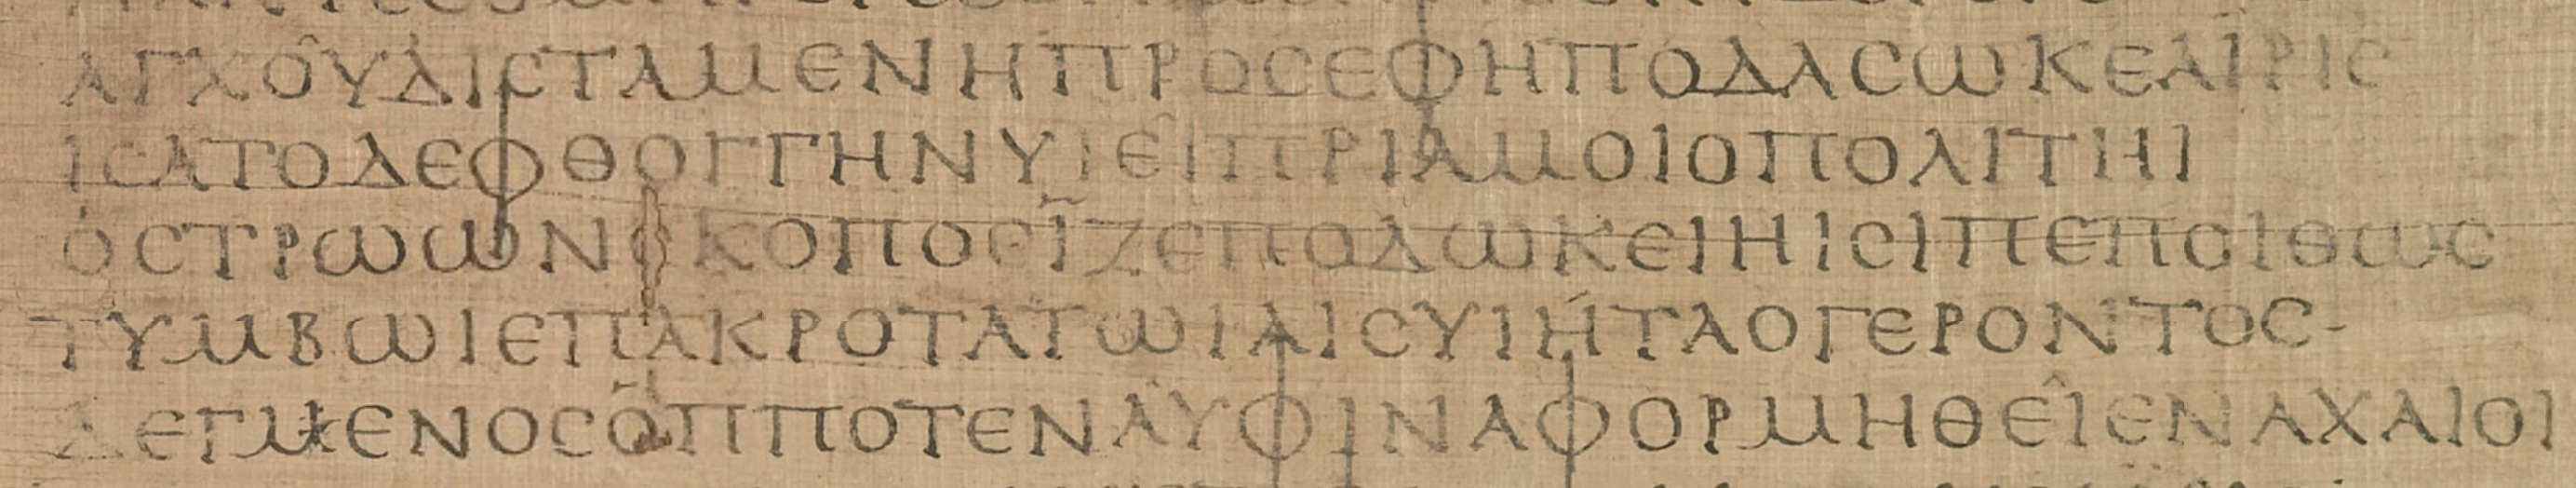 ΑΓΧΟΥ͂ΔΙϹΤΑΜΕΝΗΠΡΟϹΕΦΗΠΟΔΑϹΩΚΕΑΙΡΙϹ
ΙϹΑΤΟΔΕΦΘΟΓΓΗΝΥΙΕΙ͂ΠΡΙΑΜΟΙΟΠΟΛΙΤΗΙ
ὉϹΤΡΩΩΝϹΚΟΠΟϹΪ͂ΖΕΠΟΔΩΚΕΙΗΙϹΙΠΕΠΟΙΘΩϹ
ΤΥΜΒΩΙΕΠΑΚΡΟΤΑΤΩΙΑΙϹΥΙΉΤΑΟΓΕΡΟΝΤΟϹ
ΔΕΓΜΕΝΟϹΟΠΠΟΤΕΝΑΥΦΙΝΑΦΟΡΜΗΘΕΙ͂ΕΝΑΧΑΙΟΙ